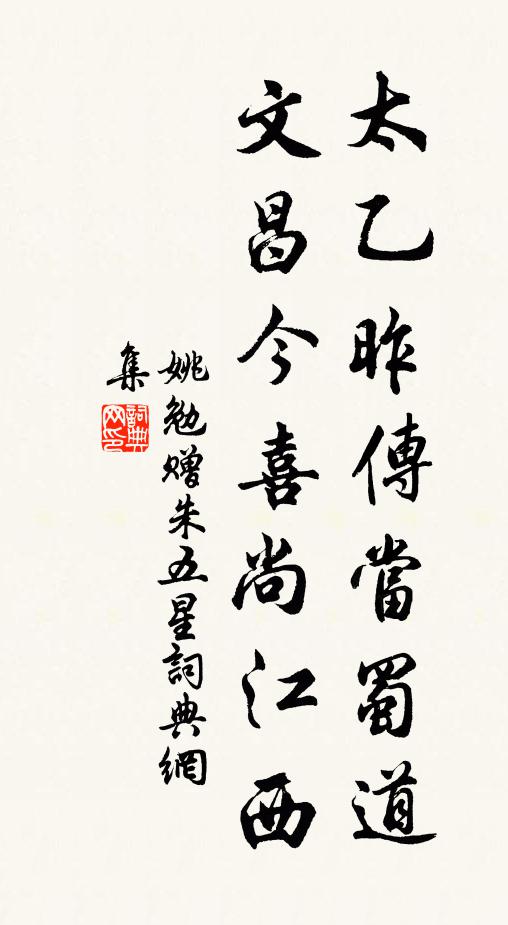 太乙昨傳當蜀道
文昌今喜尚江西
姚勉贈朱五星詞典網
集
詞典
网印